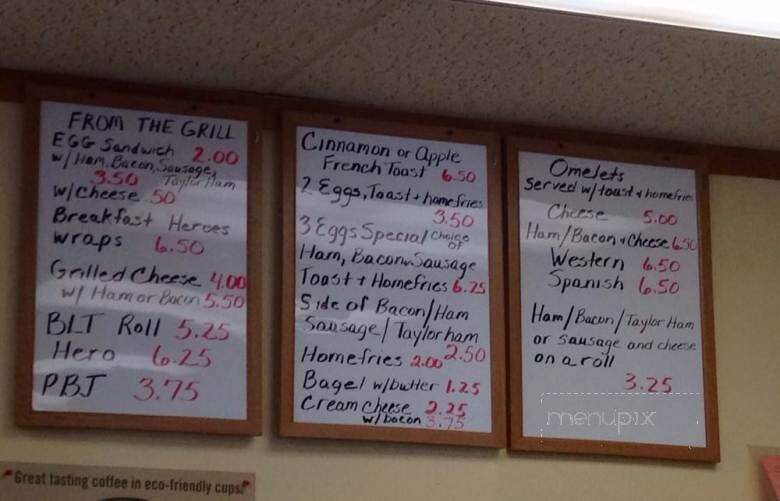 FROM THE GRILL
EGG Sandwich 2.00
w/Ham, Bacon, Sausage,
3.50 Taylor Ham
w/cheese .50
Breakfast Heroes
wraps 6.50
Grilled Cheese 4.00
w/ Ham or Bacon 5.50
BLT Roll 5.25
Hero 6.25
PBJ 3.75
Cinnamon or Apple
French Toast 6.50
2 Eggs, Toast + homefries
3.50
3 Eggs Special/Choice of
Ham, Bacon, Sausage
Toast + Homefries 6.25
Side of Bacon/Ham
Sausage/Taylorham
2.50
Homefries 2.00
Bagel w/butter 1.25
Cream cheese 2.25
w/bacon 3.75
Omelets
Served w/toast + homefries
Cheese 5.00
Ham/Bacon + Cheese 6.50
Western 6.50
Spanish 6.50
Ham/Bacon/Taylor Ham
or sausage and cheese
on a roll
3.25
menupix
Great tasting coffee in eco-friendly cups!